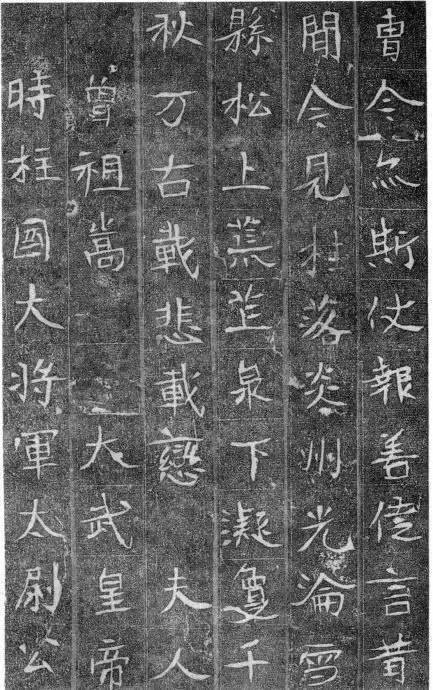 曹令尒斯仗報善徒言昔
聞今見桂落炎州光淪雪
縣松上荒芒泉下凝夐千
秋万古載悲載戀　夫人
曾祖嵩　大武皇帝
時柱國大將軍太尉公